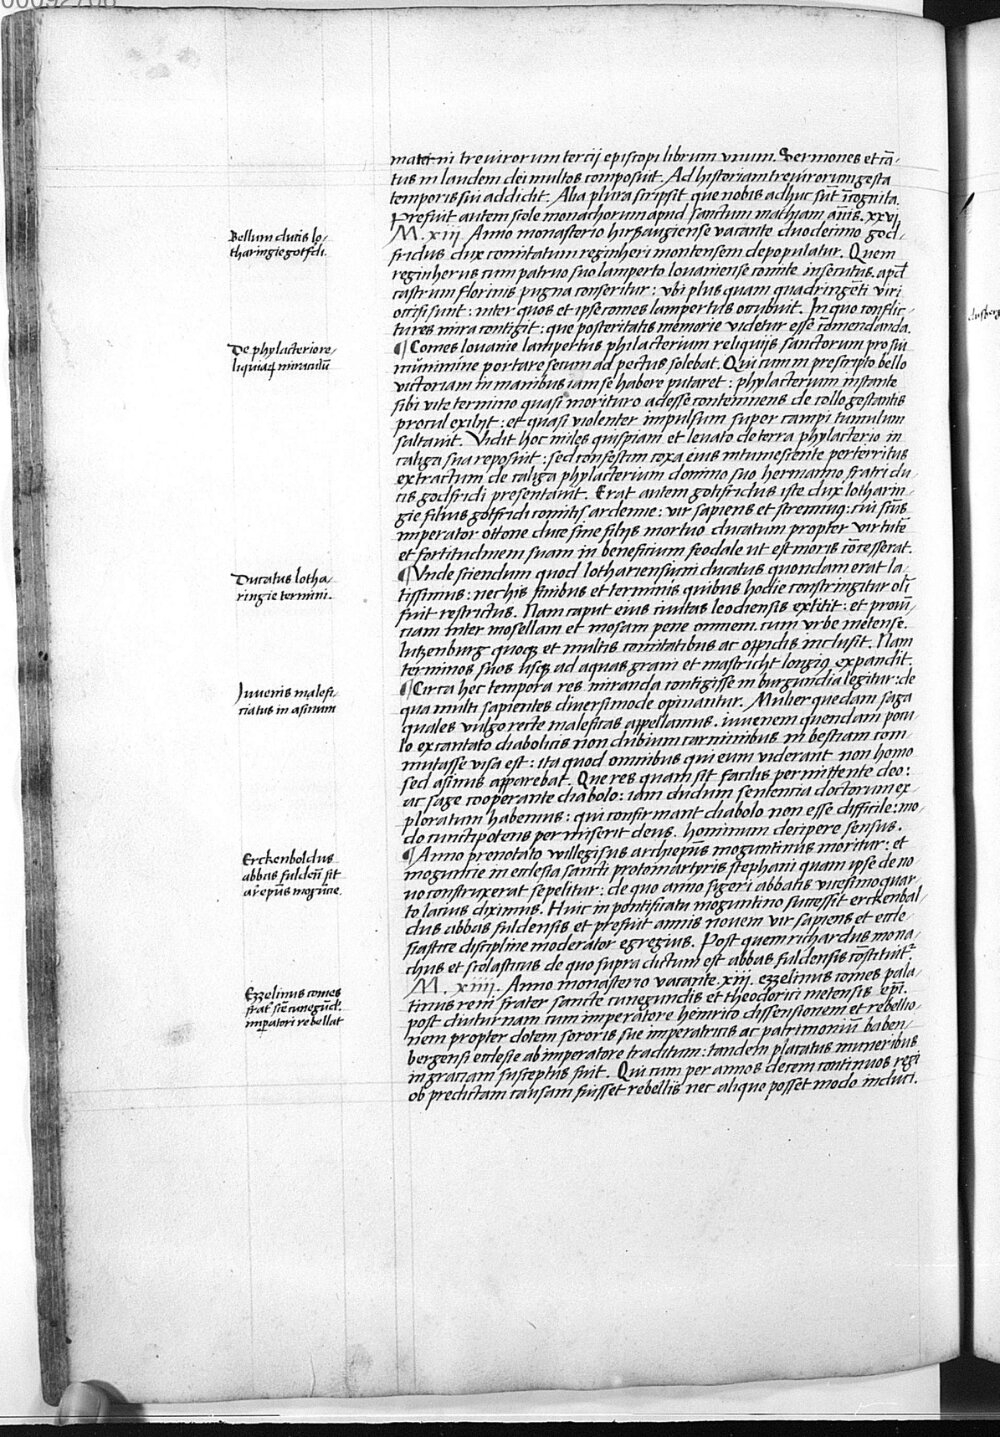 materni trevirorum tercij episcopi librum unum. Sermones et cā-
tus in laudem dei multos composuit. Ad historiam trevirorum gesta
temporis sui addidit. Alia plura scripsit que nobis adhuc sūt ī̄cognita.
Prefuit autem scole monachorum apud sanctum mathiam ānis. xxvi.
M. xiii. Anno monasterio hirsaugiense vacante duodecimo god-
Bellum ducis lo-
tharingie gotfridi.
fridus dux comitatum reginheri montensem depopulatur. Quem
reginherus cum patruo suo lamperto lovaniense comite insecutus, apd̄
castrum florinis pugna conseritur: ubi plus quam quadringēti viri
occisi sunt: inter quos et ipse comes lampertus occubuit. In quo conflic-
tures mira contigit: que posteritatis memorie videtur esse cōmendanda.
De phylacterio re-
liquiaꝝ miraculū
¶ Comes lovanie lampertus philacterium reliquijs sanctorum pro sui
munimine portare secum ad pectus solebat. Qui cum in prescripto bello
victoriam in manibus iam se habere putaret: phylacterium instante
sibi vite termino quasi morituro adesse contemnens de collo gestantis
procul exilijt: et quasi violenter impulsum super campi tumulum
saltavit. Vidit hoc miles quispiam et levato de terra phylacterio in
caliga sua reposuit: sed confestim coxa eius intumescente perterritus
extractum de caliga phylacterium domino suo hermanno fratri du-
cis godfridi presentavit. Erat autem gotifridus iste dux lotharin-
gie filius gotfridi comitis ardenne: vir sapiens et strenuus: cui scūs
imperator ottone duce sine filijs mortuo ducatum propter virtutē
et fortitudinem suam in beneficium feodale ut est moris cōcesserat.
Ducatus lotha-
ringie termini.
¶ Vnde sciendum quod lothariensium ducatus quondam erat la-
tissimus: nec his finibus et terminis quibus hodie constringitur olī
fuit restrictus. Nam caput eius civitas leodiensis extitit: et provī-
ciam inter mosellam et mosam pene omnem, cum urbe metense.
lutzenburg quoqꝫ et multis comitatibus ac oppidis inclusit. Nam
terminos suos usqꝫ ad aquas grani et mastricht longius expandit.
Iuvenis malefi-
ciatus in asinum
¶ Circa hec tempora res miranda contigisse in burgundia legitur: de
qua multi sapientes diversimode opinantur. Mulier quedam saga
quales vulgo recte maleficas appellamus, iuvenem quendam pocu-
lo excantato diabolicis non dubium carminibus in bestiam com-
mutasse visa est: ita quod omnibus qui eum viderant non homo
sed asinus apparebat. Que res quam sit facilis permittente deo:
ac sage cooperante diabolo: iam dudum sentencia doctorum ex-
ploratum habemus: qui confirmant diabolo non esse difficile: mo-
do cunctipotens permiserit deus, hominum decipere sensus.
Erckenboldus
abbas fuldeñ fit
archiepūs mogūtie.
¶ Anno prenotato willegisus archiepūs moguntinus moritur: et
moguncie in ecclesia sancti protomartyris stephani quam ipse de no-
vo construxerat sepelitur: de quo anno sigeri abbatis vicesimoquar-
to lacius diximus. Huic in pontificatu moguntino successit erckenbal-
dus abbas fuldensis et prefuit annis novem vir sapiens et eccle-
siastice discipline moderator egregius. Post quem richardus mona-
chus et scolasticus de quo supra dictum est abbas fuldensis cōstituitr̄
Ezzelinus comes
frat̄ scē cunegūd.
imp̄atori rebellat
M. xiiii. Anno monasterio vacante. xiii. ezzelinus comes pala-
tinus reni frater sancte cunegundis et theodorici metensis epī.
post diuturnam cum imperatore heinrico dissensionem et rebellio-
nem propter dotem sororis sue imperatricis ac patrimoniū baben-
bergensi ecclesie ab imperatore traditum: tandem placatus muneribus
in graciam susceptus fuit. Qui cum per annos decem continuos regi
ob predictam causam fuisset rebellis nec aliquo posset modo induci.